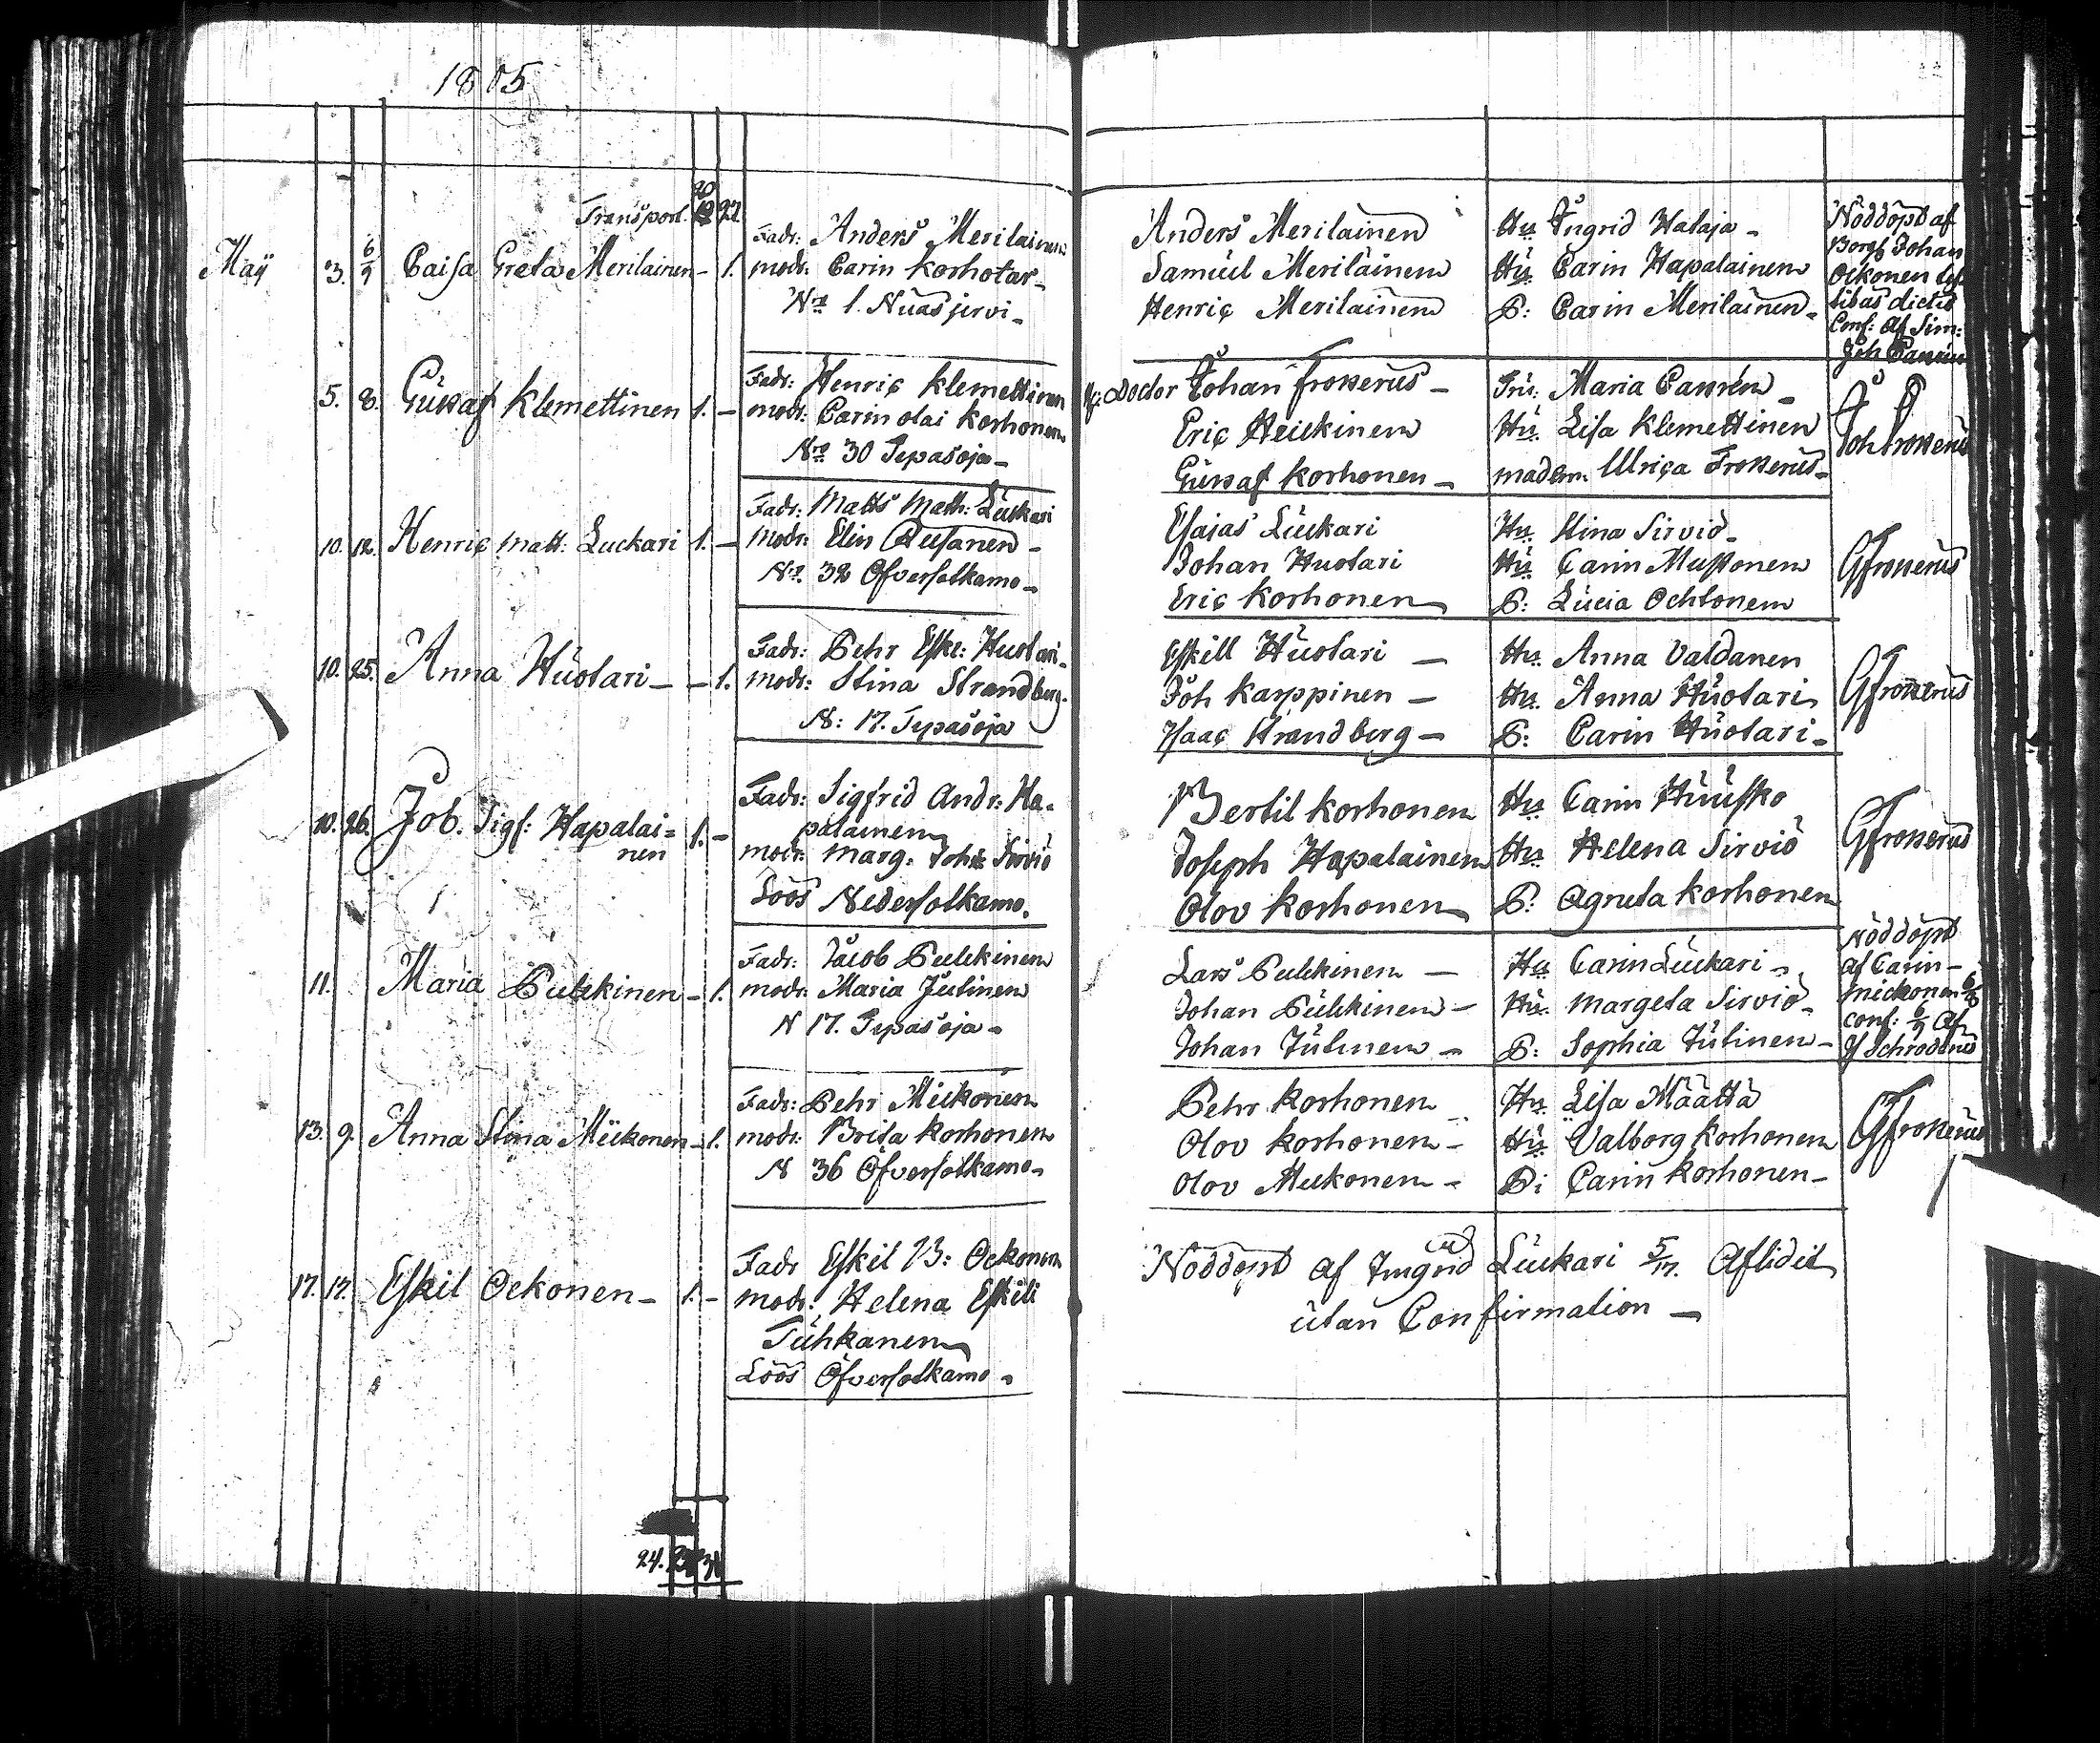 1805
Transport. 22.
May 3. 6/9 Caisa Greta Merilainen - 1.
Fadr: Anders Merilainen
modr: Carin Korhotar -
No 1. Nuasjervi -
Anders Merilainen
Samuel Meriläinen
Henric Merilainen
Hu Ingrid Halaja -
Hu. Carin Hapalainen
P: Carin Merilainen -
Nöddöpt af
Borgs Johan
Oikonen
dictus
Conf: af Sim:
Joh
5. 8. Gustaf Klemettinen 1. -
Fadr: Henric Klemettinen
modr: Carin Olai Korhonen
No 30 Tipasoja -
Doctor Johan Frosterus -
Eric Heickinen
Gustaf Korhonen -
Fru: Maria
Hu. Lisa Klemettinen
madem. Ulrica Frosterus -
Joh Frosterus
10. 12. Henric Matt: Luckari 1. -
Fadr: Matts Math: Luckari
Modr: Elin -
No. 32 Ofversotkamo -
Esaias Luckari
Johan Huotari
Eric Korhonen
Hu Stina Sirvio -
Hu Carin Mustonen
P: Lucia Ochtonen
GFrosterus
10. 25. Anna Huotari - - 1.
Fadr: Pehr Esk: Huotari -
modr: Stina Strandberg.
N: 17. Tipasoja
Eskill Huotari -
Joh Karppinen -
Isaac Strandberg -
Hu. Anna Valdanen
Hu. Anna Huotari
P: Carin Huotari -
GFrosterus
10. 26. Job. Sigf: Hapalai=
nen 1. -
Fadr: Sigfrid Andr: Ha=
palainen
modr: Marg: Joh: Sirviö
Löös Nedersotkamo.
Bertil Korhonen
Joseph Hapalainen
Olov Korhonen
Hu Carin Huusko
Hu Helena Sirviö
P: Agneta Korhonen
GFrosterus
11. Maria Pulkkinen - 1.
Fadr: Jacob Pulkkinen
modr: Maria Julinen
N 17. Tipasoja -
Lars Pulkkinen -
Johan Pulkkinen -
Johan Julinen -
Hu Carin Luckari -
Hu. Margeta Sirviö -
P: Sophia Julinen -
Nöddöpt
af Carin -
Mickonen
Conf: 6/9 af
J Schroderus
13. 9. Anna Stina Miikonen - 1.
Fadr: Pehr Mickonen
modr: Brita Korhonen
N 36 Öfversotkamo -
Pehr Korhonen
Olov Korhonen -
Olov Mickonen -
Hu Lisa Määttä
Hu Valborg Korhonen
P: Carin Korhonen -
GFrosterus
17. 17. Eskil Ockonen - 1. -
Fadr Eskil B: Ockonen
modr: Helena Eskili
Tuhkanen
Löös Ofversotkamo -
Noddopt af Ingrid Luckari 5/17. Aflidit
utan Confirmation -
24.